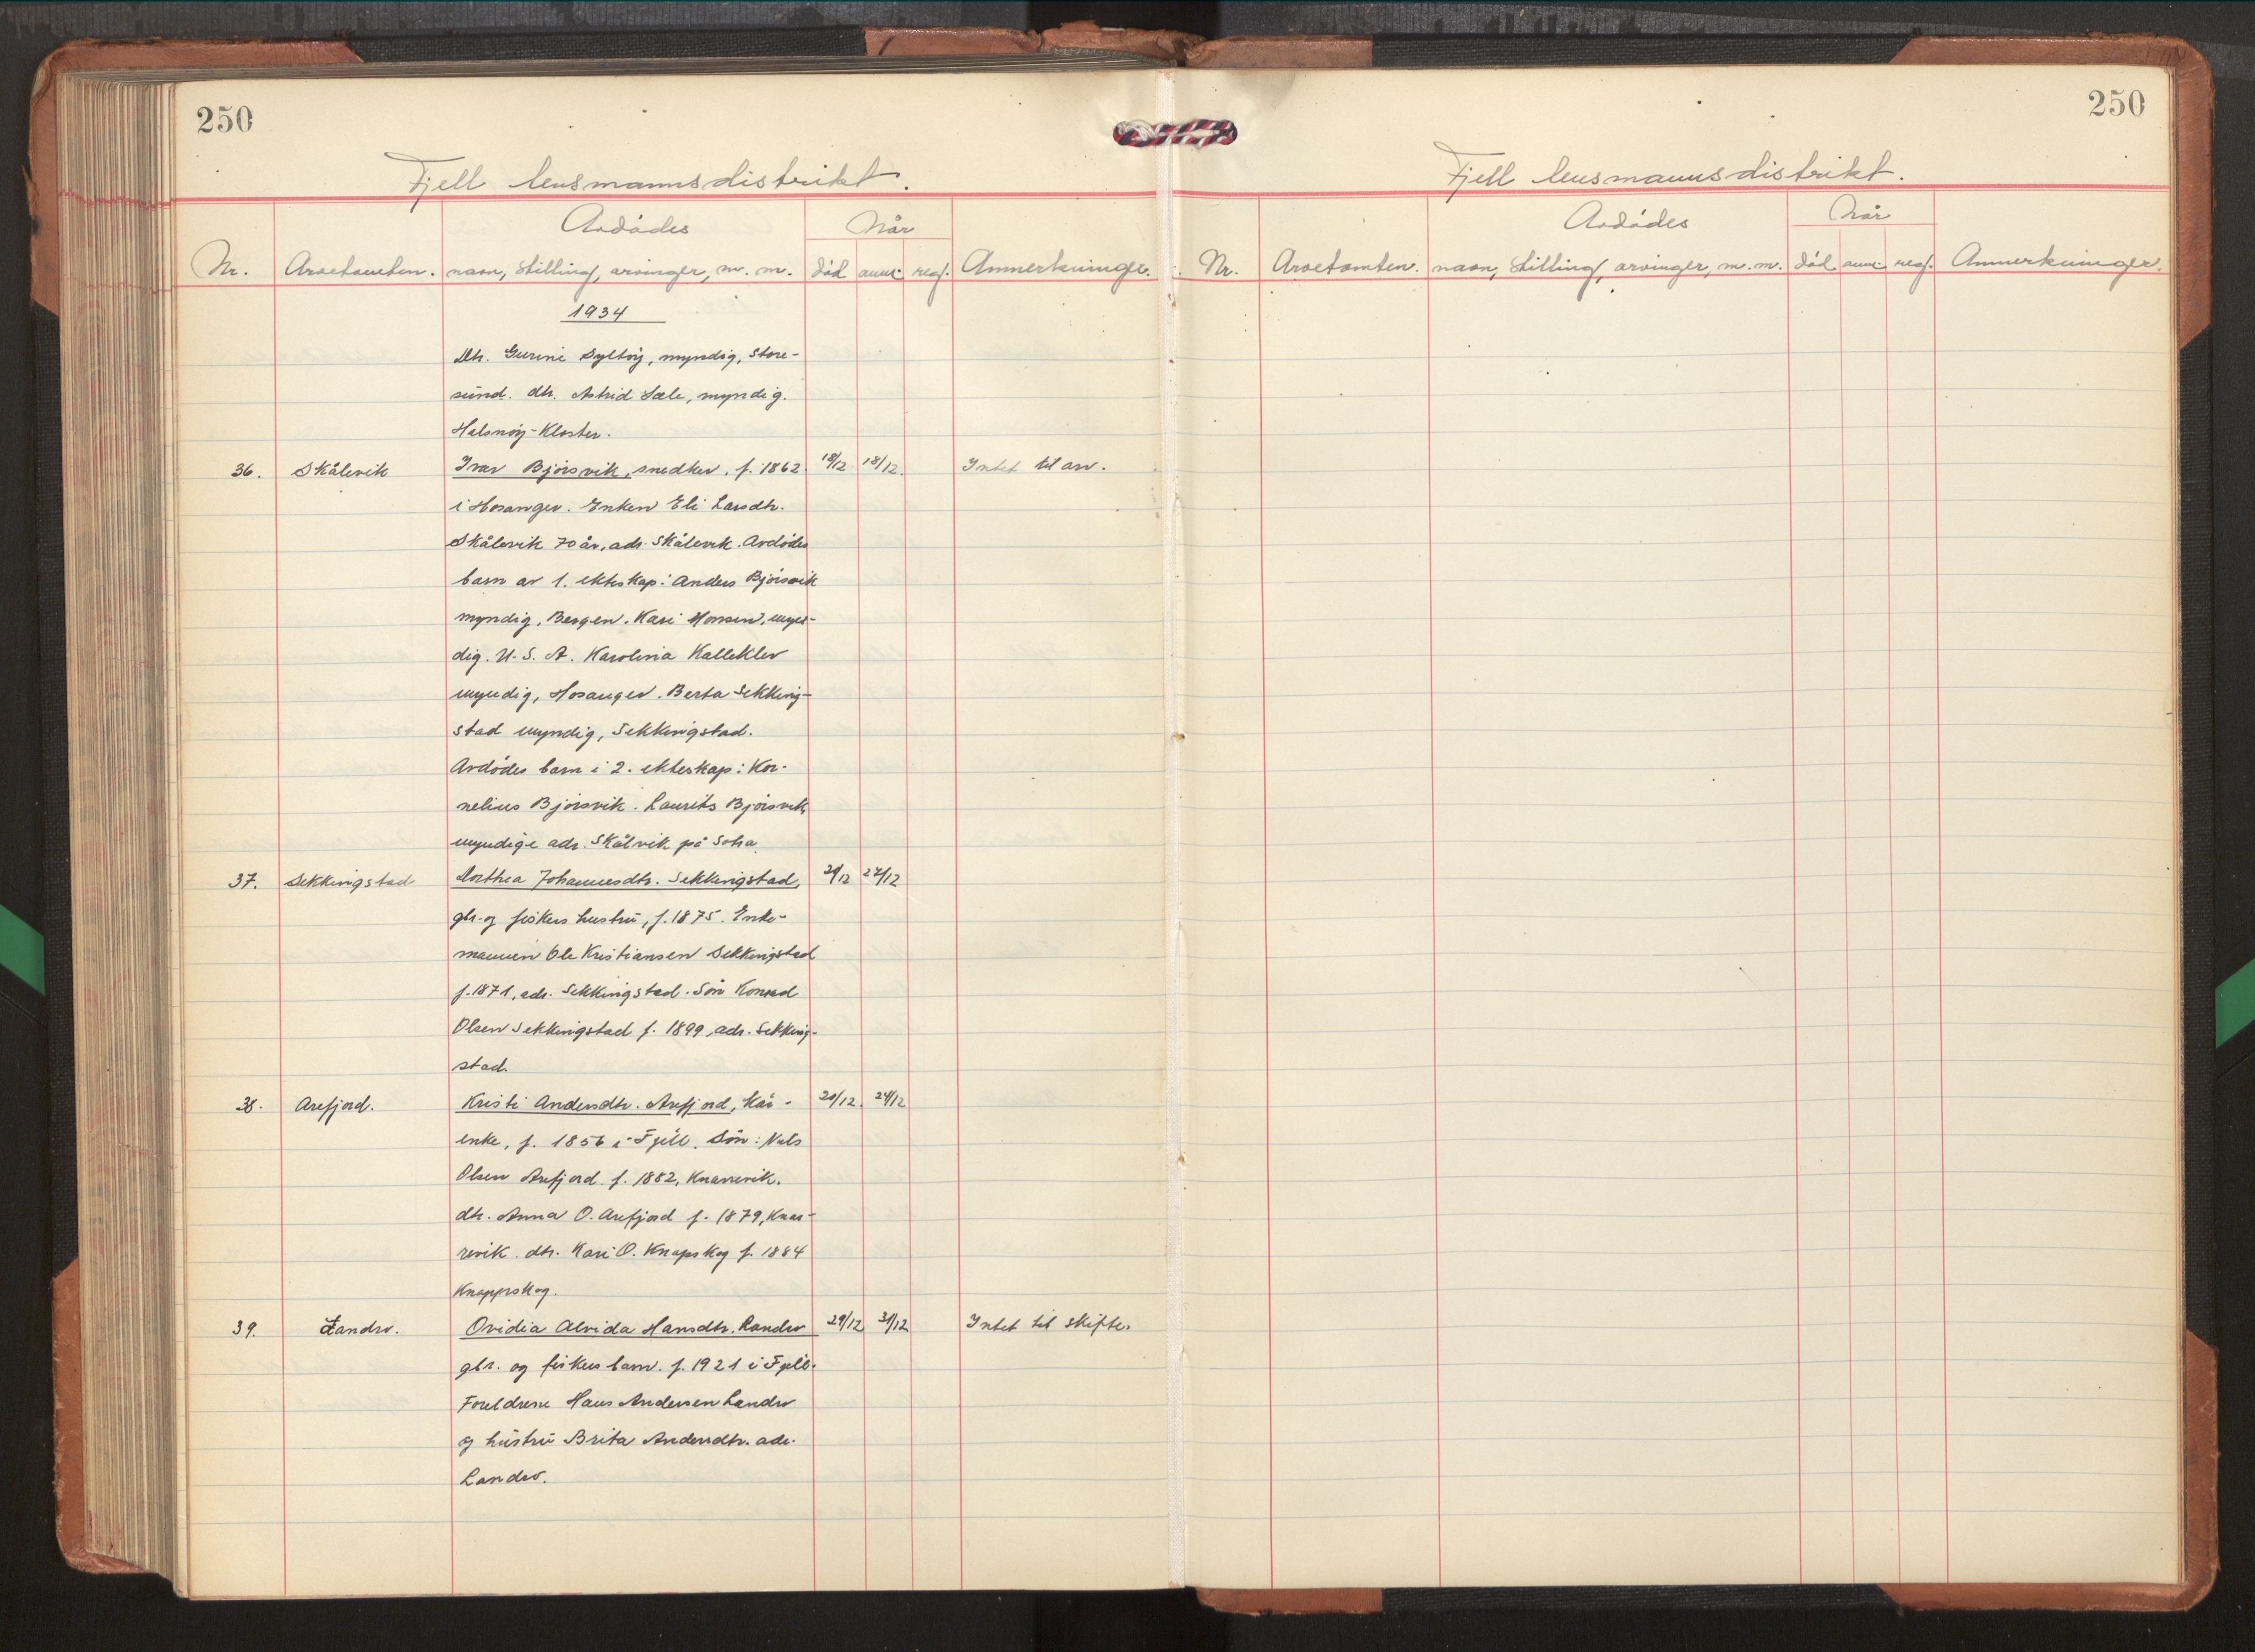 250
Fjell lensmannsdistrikt.
Avdødes
Når
Nr. Arvetomten. navn, stilling, arvinger, m. m. død anm. reg. Anmerkninger.
1934
dtr. Gurine Syltøy, myndig, Store-
sund. dtr. Astrid Sæle, myndig.
Halsnøy-Kloster.
36. Skålevik Ivar Bjørsvik, snedker, f. 1862 18/12 18/12. Intet til arv.
i Hosanger. Enken Eli Larsdtr.
Skålevik 70 år, adr. Skålevik. Avdødes
barn av 1. ekteskap: Anders Bjørsvik
myndig, Bergen. Kari Monsen, myn-
dig. U. S. A. Karolina Kalleklev
myndig, Hosanger. Berta Sekking-
stad myndig, Sekkingstad.
Avdødes barn i 2. ekteskap: Kor-
nelius Bjørsvik. Laurits Bjørsvik
myndige adr. Skålvik på Sotra.
37. Sekkingstad Dorthea Johannesdtr. Sekkingstad, 21/12 27/12
gbr. og fiskers hustru, f. 1875. Enke-
mannen Ole Kristiansen Sekkingstad
f. 1871, adr. Sekkingstad. Søn Konrad
Olsen Sekkingstad f. 1899, adr. Sekking-
stad.
38. Arefjord. Kristi Andersdtr. Arefjord, kår- 20/12. 24/12
enke, f. 1856 i Fjell. Søn: Nils
Olsen Arefjord f. 1882, Knarrevik.
dtr. Anna O. Arefjord f. 1879, Knar-
revik. dtr. Kari O. Knapskog f. 1884
Knappskog.
39. Landro. Ovidia Alvida Hansdtr. Landro 29/12 31/12 Intet til skifte.
gbr. og fiskers barn. f. 1921 i Fjell.
Foreldrene Hans Andersen Landro
og hustru Brita Andersdtr. adr.
Landro.
250
Fjell lensmannsdistrikt.
Avdødes
Når
Nr. Arvetomten. navn, stilling, arvinger, m. m. død anm. reg. Anmerkninger.